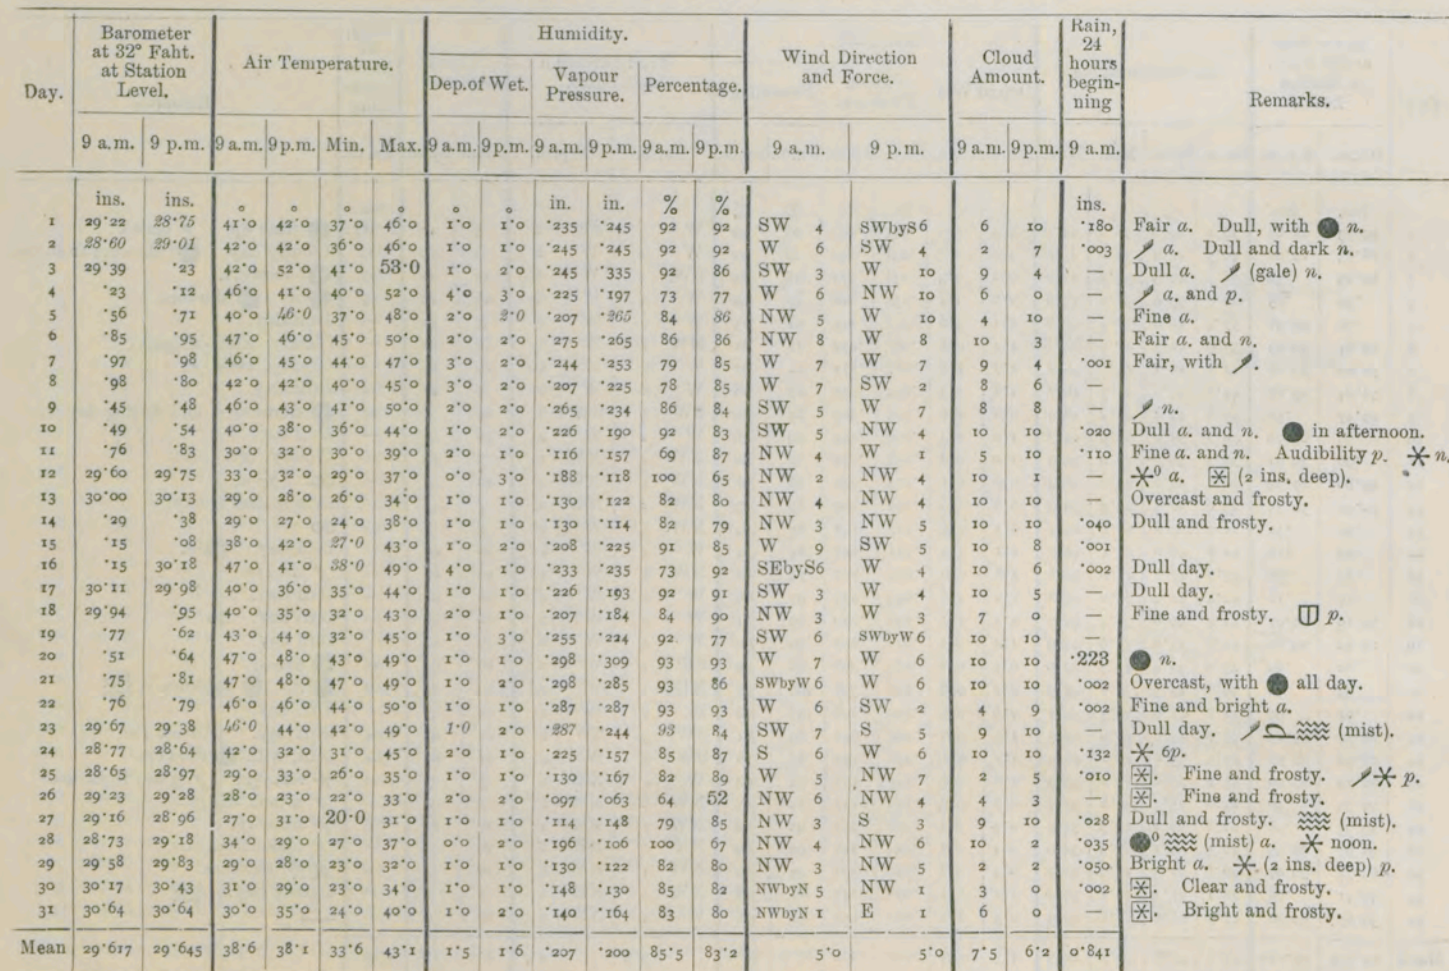 Day. Barometer at 32° Faht. at Station Level. Air Temperature. Humidity. Wind Direction and Force. Cloud Amount. Rain, 24 hours beginning Remarks.
Dep. of Wet. Vapour Pressure. Percentage.
9 a.m. 9 p.m. 9 a.m. 9 p.m. Min. Max. 9 a.m. 9 p.m. 9 a.m. 9 p.m. 9 a.m. 9 p.m 9 a.m. 9 p.m. 9 a.m. 9 p.m. 9 a.m.
ins. ins. ° ° ° ° ° ° in. in. % % ins.
1 29·22 28·75 41·0 42·0 37·0 46·0 1·0 1·0 ·235 ·245 92 92 SW 4 SWbyS 6 6 10 ·180 Fair a. Dull, with ● n.
2 28·60 29·01 42·0 42·0 36·0 46·0 1·0 1·0 ·245 ·245 92 92 W 6 SW 4 2 7 ·003 a. Dull and dark n.
3 29·39 ·23 42·0 52·0 41·0 53·0 1·0 2·0 ·245 ·335 92 86 SW 3 W 10 9 4 — Dull a. (gale) n.
4 ·23 ·12 46·0 41·0 40·0 52·0 4·0 3·0 ·225 ·197 73 77 W 6 NW 10 6 0 — a. and p.
5 ·56 ·71 40·0 46·0 37·0 48·0 2·0 2·0 ·207 ·265 84 86 NW 5 W 10 4 10 — Fine a.
6 ·85 ·95 47·0 46·0 45·0 50·0 2·0 2·0 ·275 ·265 86 86 NW 8 W 8 10 3 — Fair a. and n.
7 ·97 ·98 46·0 45·0 44·0 47·0 3·0 2·0 ·244 ·253 79 85 W 7 W 7 9 4 ·001 Fair, with .
8 ·98 ·80 42·0 42·0 40·0 45·0 3·0 2·0 ·207 ·225 78 85 W 7 SW 2 8 6 —
9 ·45 ·48 46·0 43·0 41·0 50·0 2·0 2·0 ·265 ·234 86 84 SW 5 W 7 8 8 — n.
10 ·49 ·54 40·0 38·0 36·0 44·0 1·0 2·0 ·226 ·190 92 83 SW 5 NW 4 10 10 ·020 Dull a. and n. ● in afternoon.
11 ·76 ·83 30·0 32·0 30·0 39·0 2·0 1·0 ·116 ·157 69 87 NW 4 W 1 5 10 ·110 Fine a. and n. Audibility p. n.
12 29·60 29·75 33·0 32·0 29·0 37·0 0·0 3·0 ·188 ·118 100 65 NW 2 NW 4 10 1 — ⁰ a. (2 ins. deep).
13 30·00 30·13 29·0 28·0 26·0 34·0 1·0 1·0 ·130 ·122 82 80 NW 4 NW 4 10 10 — Overcast and frosty.
14 ·29 ·38 29·0 27·0 24·0 38·0 1·0 1·0 ·130 ·114 82 79 NW 3 NW 5 10 10 ·040 Dull and frosty.
15 ·15 ·08 38·0 42·0 27·0 43·0 1·0 2·0 ·208 ·225 91 85 W 9 SW 5 10 8 ·001
16 ·15 30·18 47·0 41·0 38·0 49·0 4·0 1·0 ·233 ·235 73 92 SEbyS 6 W 4 10 6 ·002 Dull day.
17 30·11 29·98 40·0 36·0 35·0 44·0 1·0 1·0 ·226 ·193 92 91 SW 3 W 4 10 5 — Dull day.
18 29·94 ·95 40·0 35·0 32·0 43·0 2·0 1·0 ·207 ·184 84 90 NW 3 W 3 7 0 — Fine and frosty. p.
19 ·77 ·62 43·0 44·0 32·0 45·0 1·0 3·0 ·255 ·224 92 77 SW 6 SWbyW 6 10 10 —
20 ·51 ·64 47·0 48·0 43·0 49·0 1·0 1·0 ·298 ·309 93 93 W 7 W 6 10 10 ·223 ● n.
21 ·75 ·81 47·0 48·0 47·0 49·0 1·0 2·0 ·298 ·285 93 86 SWbyW 6 W 6 10 10 ·002 Overcast, with ● all day.
22 ·76 ·79 46·0 46·0 44·0 50·0 1·0 1·0 ·287 ·287 93 93 W 6 SW 2 4 9 ·002 Fine and bright a.
23 29·67 29·38 46·0 44·0 42·0 49·0 1·0 2·0 ·287 ·244 93 84 SW 7 S 5 9 10 — Dull day. (mist).
24 28·77 28·64 42·0 32·0 31·0 45·0 2·0 1·0 ·225 ·157 85 87 S 6 W 6 10 10 ·132 6p.
25 28·65 28·97 29·0 33·0 26·0 35·0 1·0 1·0 ·130 ·167 82 89 W 5 NW 7 2 5 ·010 . Fine and frosty. p.
26 29·23 29·28 28·0 23·0 22·0 33·0 2·0 2·0 ·097 ·063 64 52 NW 6 NW 4 4 3 — . Fine and frosty.
27 29·16 28·96 27·0 31·0 20·0 31·0 1·0 1·0 ·114 ·148 79 85 NW 3 S 3 9 10 ·028 Dull and frosty. (mist).
28 28·73 29·18 34·0 29·0 27·0 37·0 0·0 2·0 ·196 ·106 100 67 NW 4 NW 6 10 2 ·035 ●⁰ (mist) a. noon.
29 29·58 29·83 29·0 28·0 23·0 32·0 1·0 1·0 ·130 ·122 82 80 NW 3 NW 5 2 2 ·050 Bright a. (2 ins. deep) p.
30 30·17 30·43 31·0 29·0 23·0 34·0 1·0 1·0 ·148 ·130 85 82 NWbyN 5 NW 1 3 0 ·002 . Clear and frosty.
31 30·64 30·64 30·0 35·0 24·0 40·0 1·0 2·0 ·140 ·164 83 80 NWbyN 1 E 1 6 0 — . Bright and frosty.
Mean 29·617 29·645 38·6 38·1 33·6 43·1 1·5 1·6 ·207 ·200 85·5 83·2 5·0 5·0 7·5 6·2 0·841